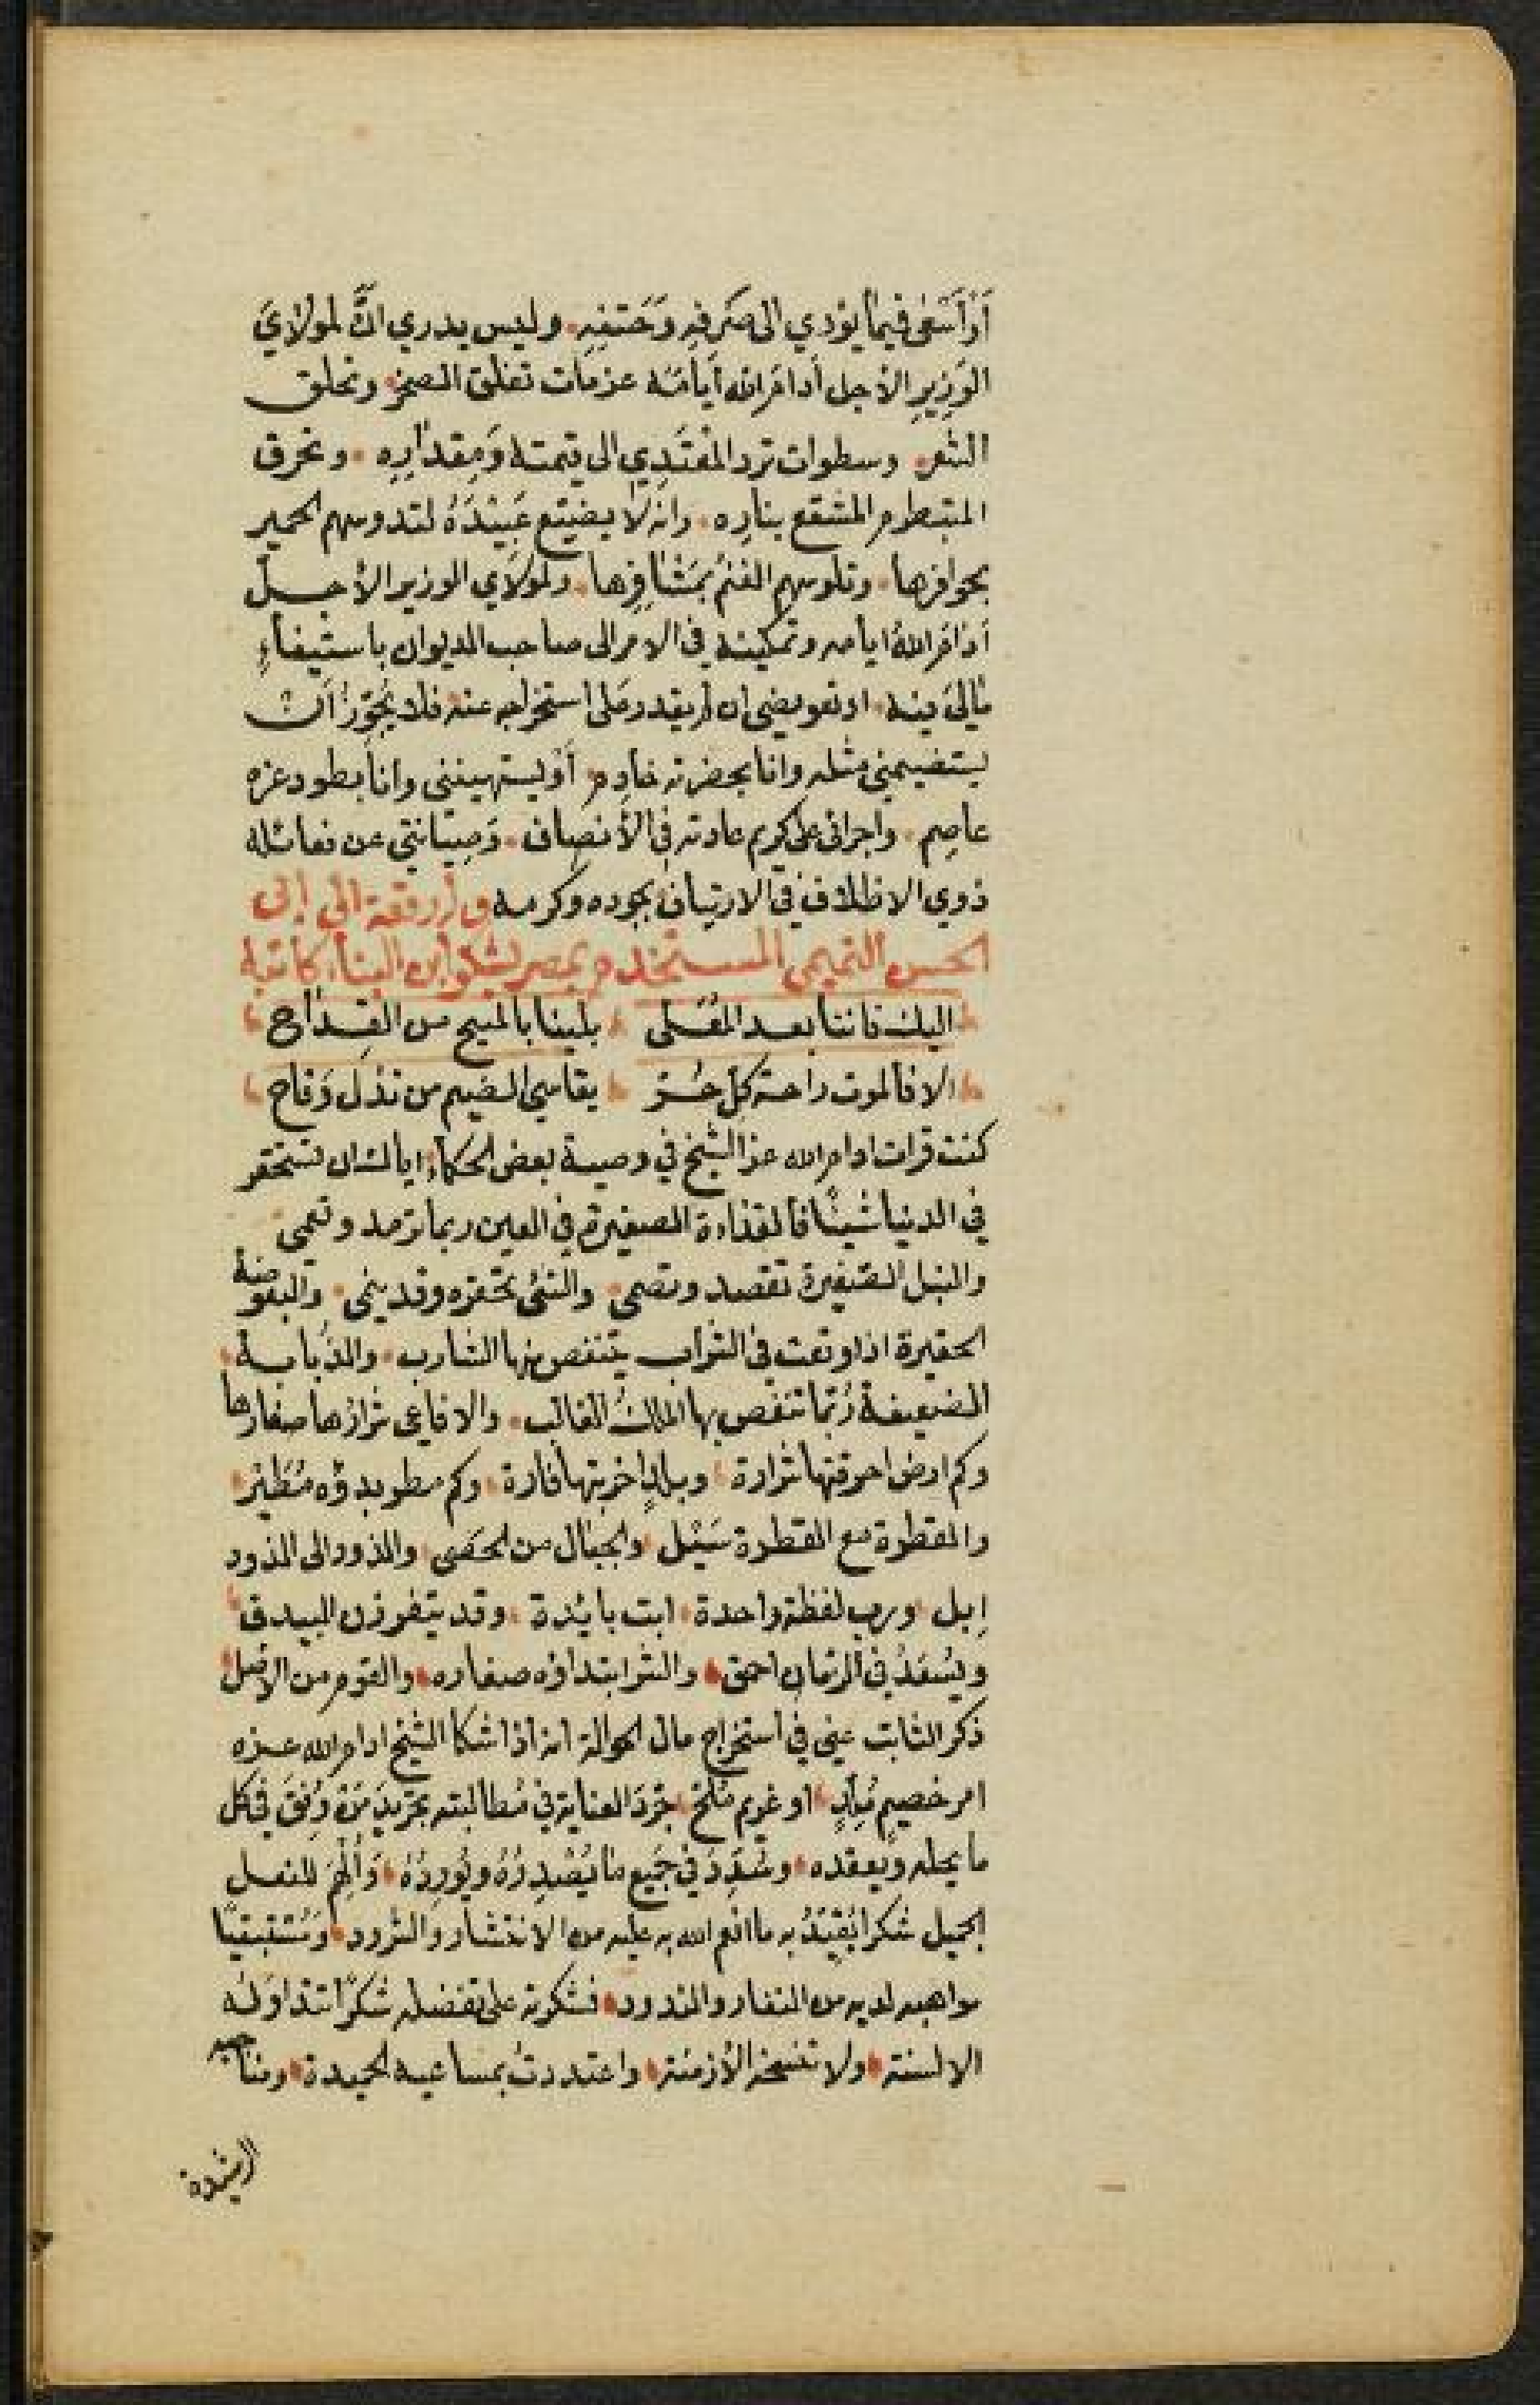 أو أسعى فيما يؤدي الى صرفه وحتفه وليس يدري ان لمولاي
الوزير الأجل أدام الله أيامه عزمات تفلق الصخر وتحلق
الشعر وسطوات ترد المعتدي الى قيمته ومقداره وتحرق
بناره وانه لا يضيع عبيده لتدوسهم الحمير
بحوافرها وتلوسهم الغنم بمشافرها ولمولاي الوزير الأجل
أدام الله ايامه وتمكينه في الامر الى صاحب الديوان باستيفاء
مالي او تعويضي ان لم يقدر على استخراجه عنه فلا يجوز أن
يستضيمني مثله وانا بحضرته خادم أو يستهينني وانا بطود عزه
عاصم واجرائي على كريم عادته في الأنصاف وصيانتي عن
ذوي الاظلاف في الارتياف بجوده وكرمه وله رقعة الى ابي
الحسن التميمي المستخدم بمصر يشكو ابن البناء كاتبه
اليك فاننا بعد المعلى بلينا بالمنيح من القداح
الا فالموت راحة كل حر يقاسي الضيم من نذل وقاح
كنت قرات ادام الله عز الشيخ في وصية بعض الحكماء اياك ان تستحقر
في الدنيا شيئا فالقذاءة الصغيرة في العين ربما ترمد وتعمي
والنبل الصغيرة تقصد وتصمي والشئ تحقره وقد ينمي والبعوضة
الحقيرة اذا وقعت في الشراب يتنغص منها الشارب والذبابة
الضعيفة ربما تنغص بها الملك الغالب والافاعي شرارها صغارها
وكم ارض احرقتها شرارة وبلد اخربتها فارة وكم مطر بدؤه مطير
والقطرة مع القطرة سيل والجبال من الحصى والذود الى الذود
إبل ورب لفظة واحدة ابت بايدة وقد يتفرزن البيدق
ويسعد في الزمان احمق والشر ابتداؤه صغاره والقوم من الاصل
ذكر الثابت عني في استخراج مال الحوالة انه اذا شكا الشيخ ادام الله عزه
امر خصيم مُلِدٍّ او غريم ملح جرد العناية في مطالبته تجريد من وفق في كل
ما يحله ويعقده وسدد في جميع ما يصدره ويورده وألهم للفعل
الجميل شكرا يقيد به ما انعم الله به عليه من الانتشار والشرود ومستبقيا
مواهبه لديه من النفار والندود فشكرته على تفضله شكرا تتداوله
الالسنة ولا تنسخه الأزمنة واعتددت بمساعيه الحميدة ومناحيه
الرشيدة